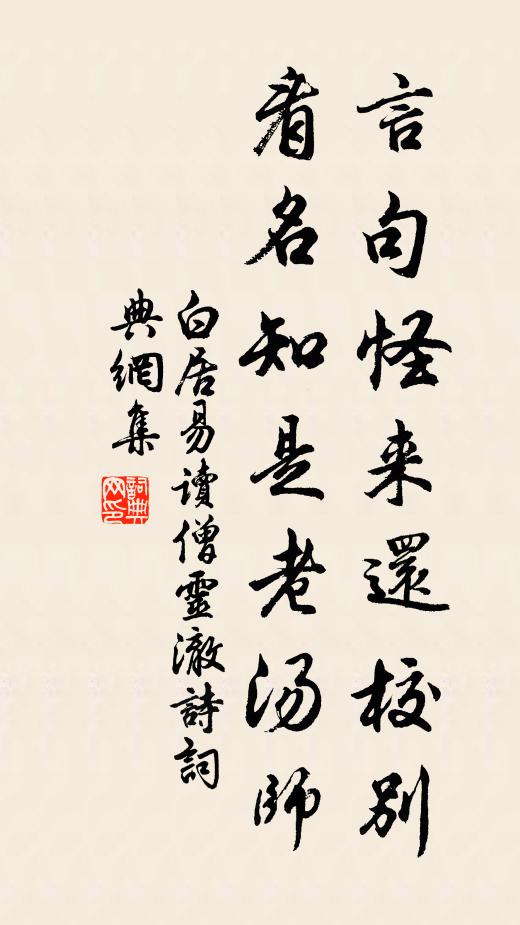 言句怪来還校別
看名知是老湯師
白居易讀僧靈澈詩詞
典網集
詞典网印